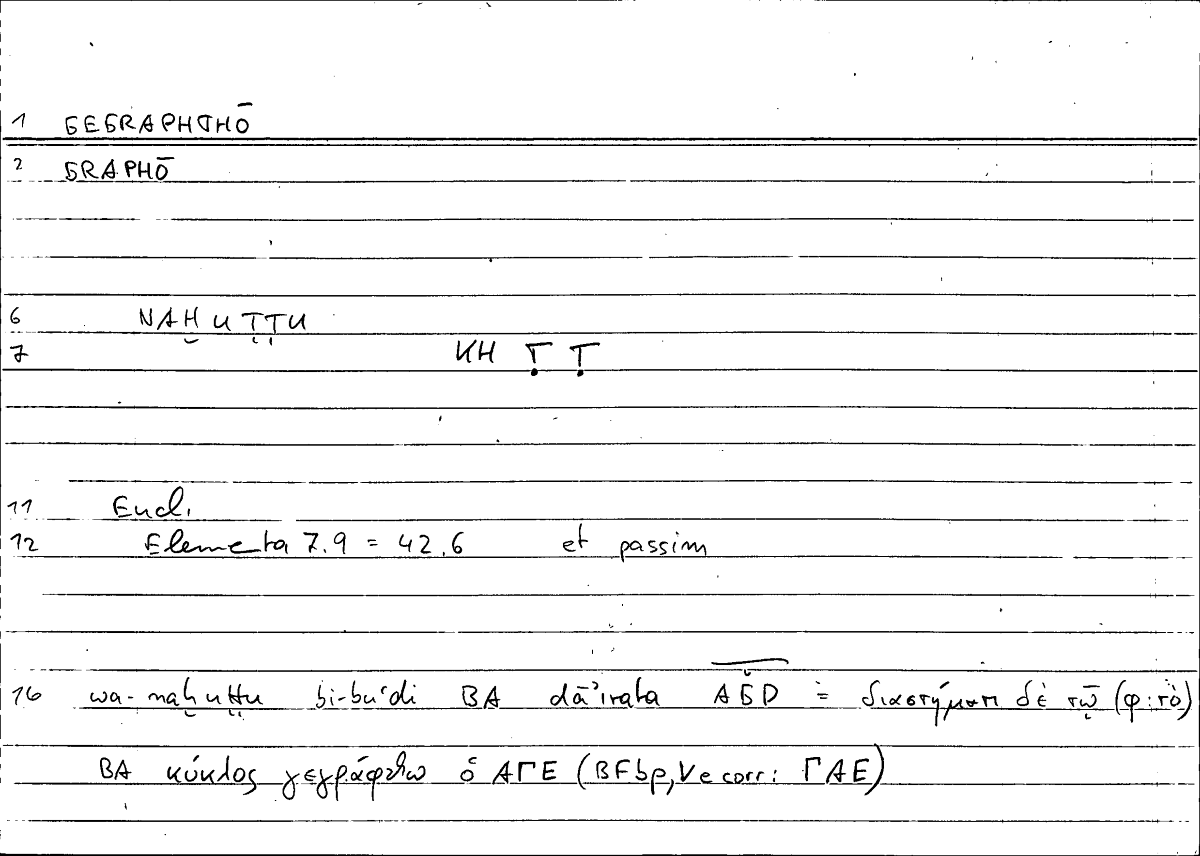 1 GEGRAPHTHŌ
2 GRAPHŌ
6 NAḪUṬṬU
7 KH Ṭ Ṭ
11 Eucl.
12 Elementa 7.9 = 42.6 et passim
16 wa-naḫuṭṭu bi-buʿdi BA dāʾirata AǦD = διαστήματι δὲ τῷ (φ: τὸ)
BA κύκλος γεγράφθω ὁ ΑΓΕ (BFbp, V e corr.: ΓΑΕ)